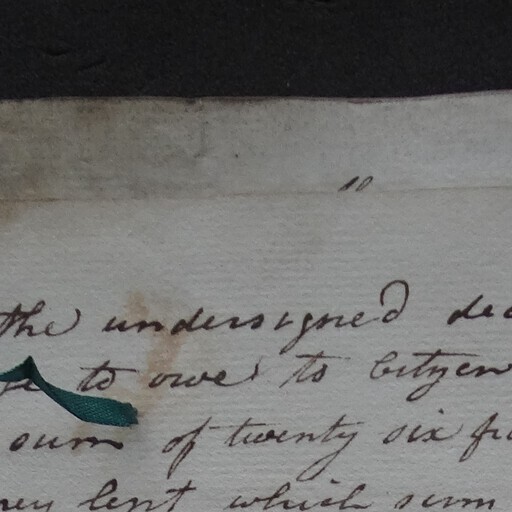 10
the undersigned dec
to owe to Citizen
sum of twenty six fr
ney lent which sum